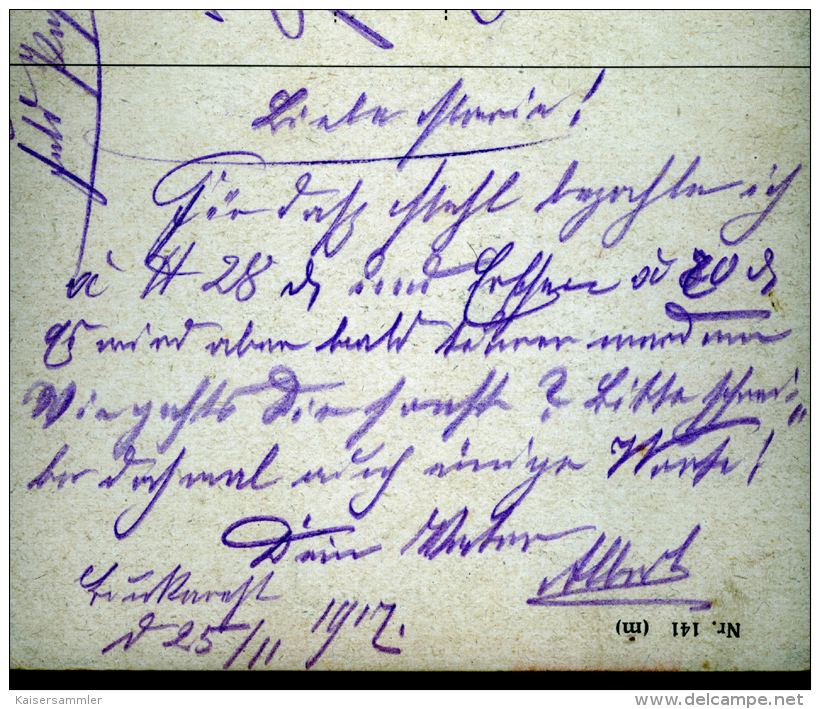 Liebe Maria!
Für das Mehl bezahle ich
à ℔ 28 ₰ und Erbsen à 70 ₰
Es wird aber bald teurer werden
Wie gehts Dir sonst? Bitte schrei-
be doch mal auch einige Worte!
Dein Vater
Albert
Bukarest
d 25/11 1917.
Nr. 141 (m)
Kaisersammler
www.delcampe.net